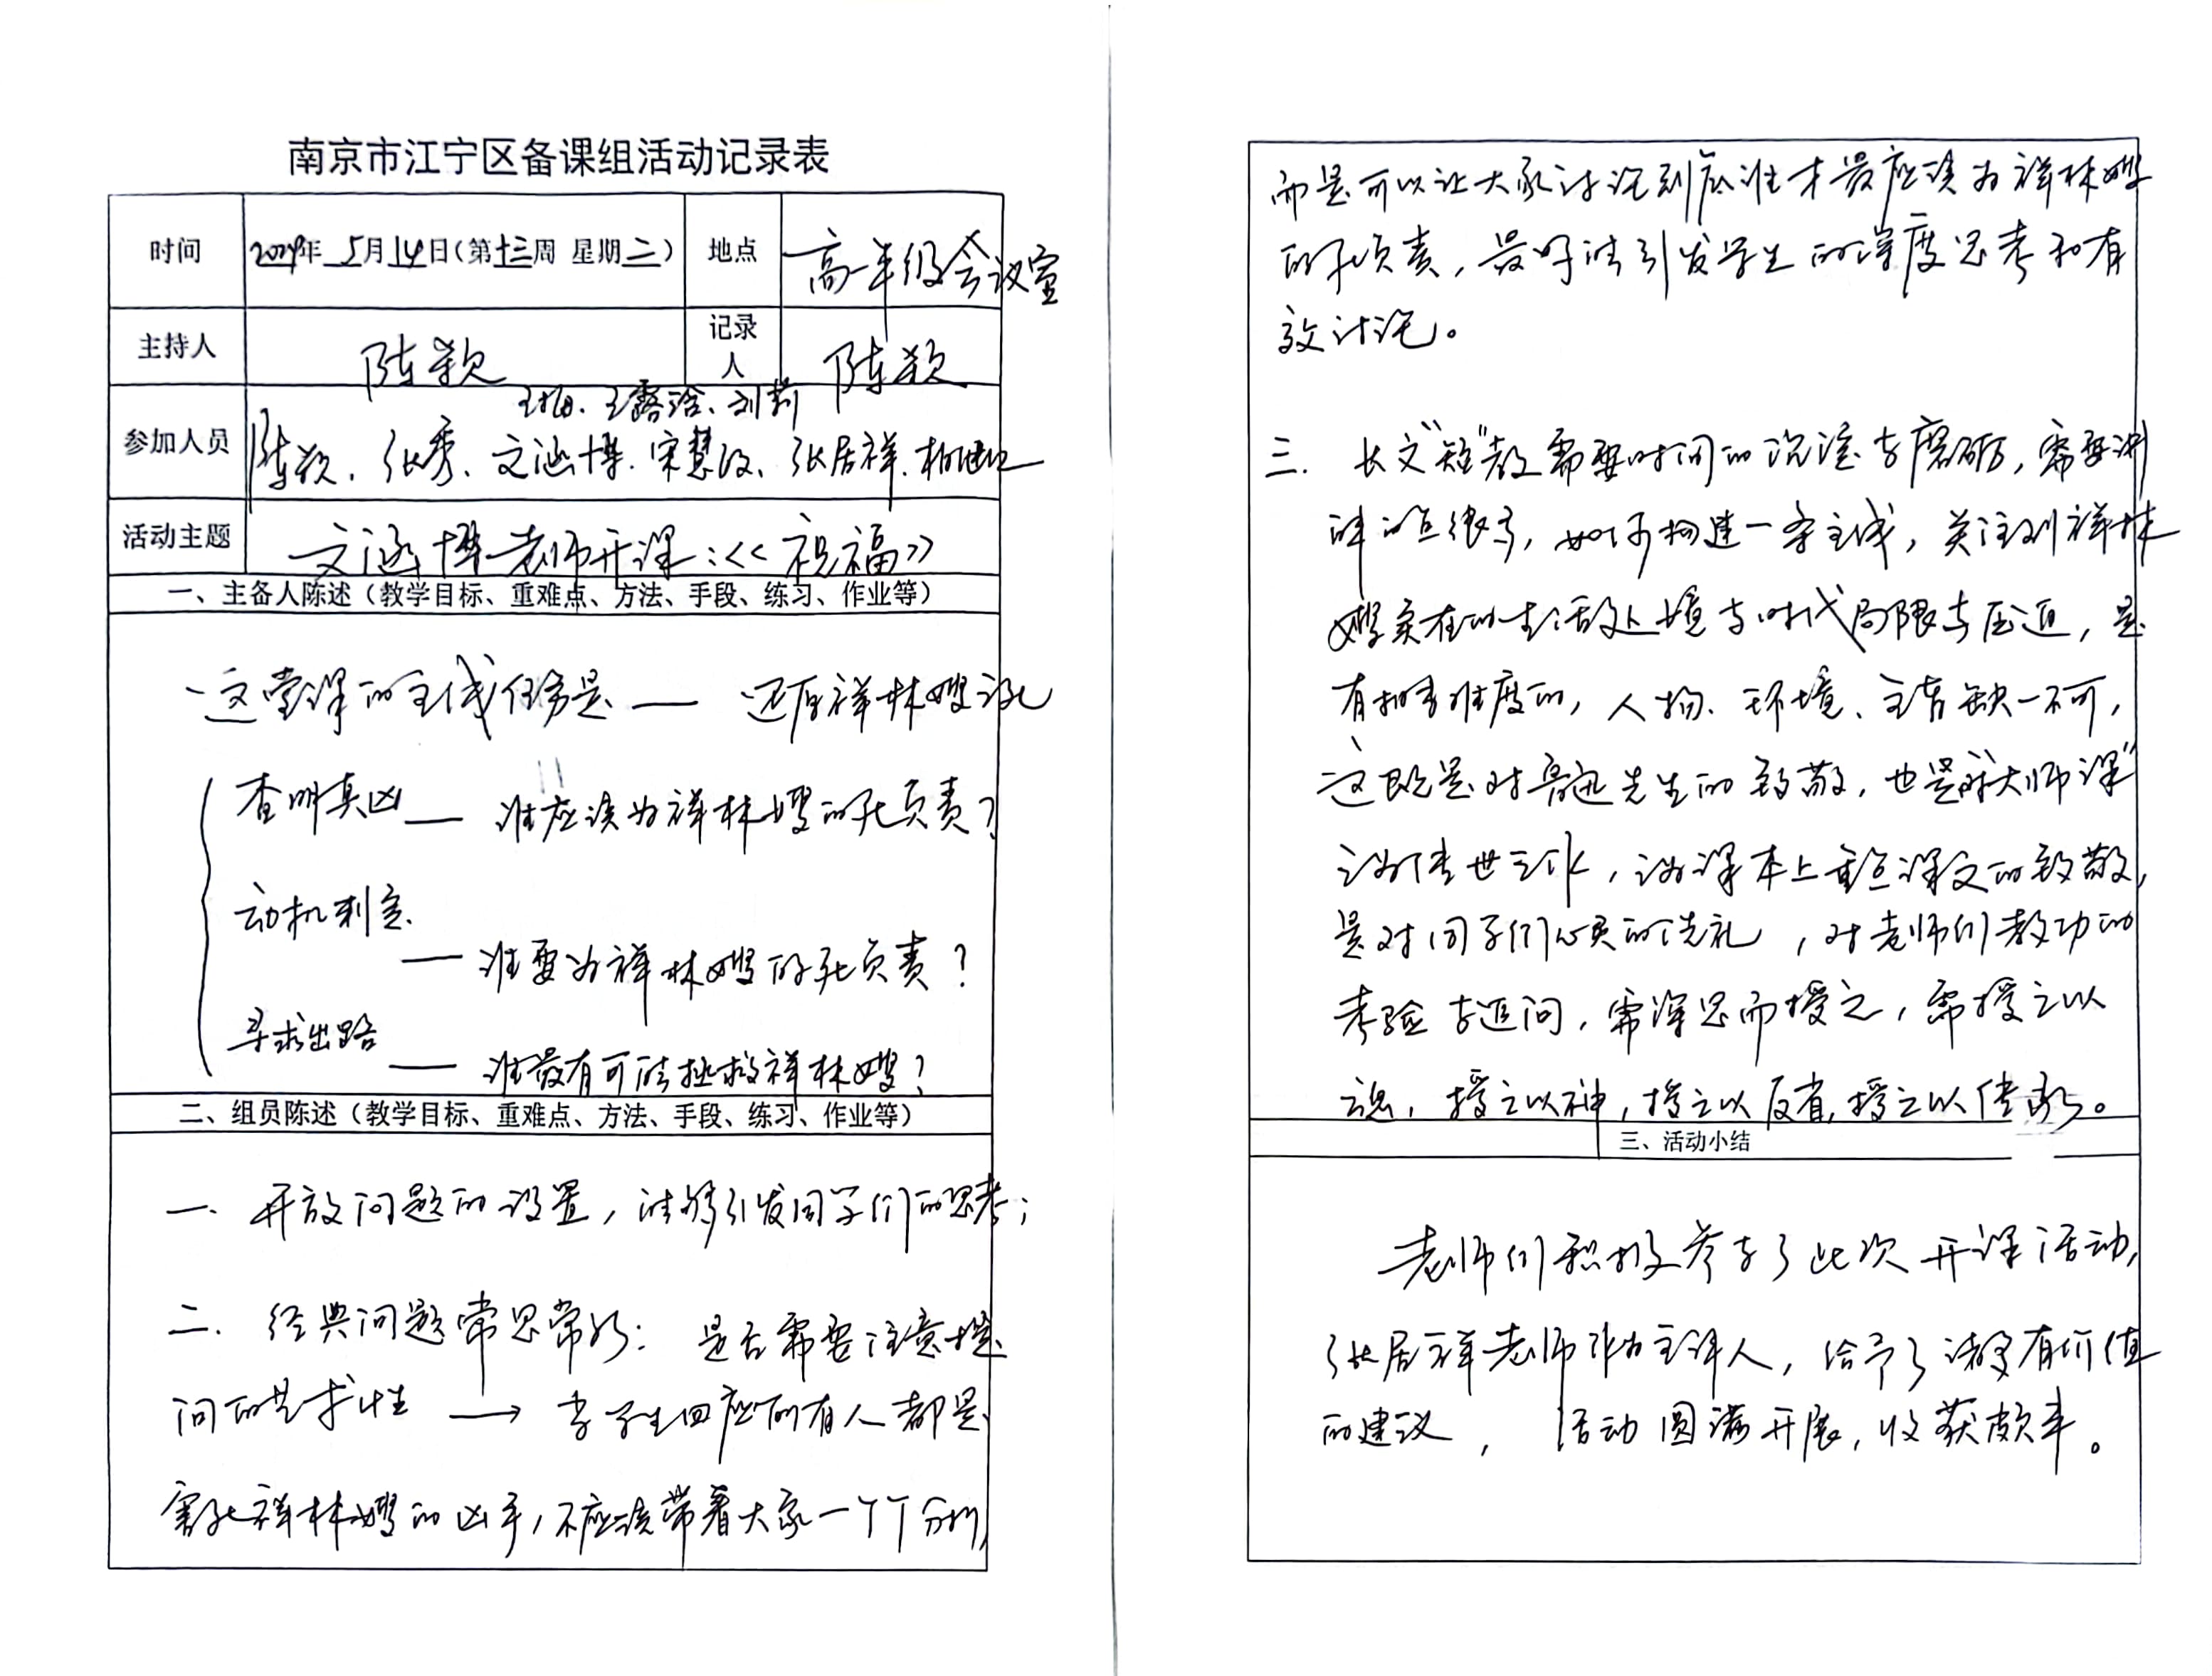 南京市江宁区备课组活动记录表
时间 2024年 5月14日(第十三周 星期二) 地点 高一年级会议室
主持人 陈颖 记录人 陈颖
王梅、王露涵、刘莉
参加人员 陈颖、张秀、文涵博、宋慧汝、张居祥、
活动主题 文涵博老师开课:<<祝福>>
一、主备人陈述(教学目标、重难点、方法、手段、练习、作业等)
这堂课的主线任务是—— 还原祥林嫂之死
查明真凶 —— 谁应该为祥林嫂的死负责?
动机判定
—— 谁要为祥林嫂的死负责?
寻求出路
—— 谁最有可能拯救祥林嫂?
二、组员陈述(教学目标、重难点、方法、手段、练习、作业等)
一. 开放问题的设置,能够引发同学们的思考;
二. 经典问题常思常新: 是否需要注意提
问的艺术性 → 当学生回应所有人都是
害死祥林嫂的凶手,不应该带着大家一个个分析,
而是可以让大家讨论到底谁才最应该为祥林嫂
的死负责,最好能引发学生的深度思考和有
效讨论。
三. 长文"短"教需要时间的沉淀与磨砺,需要讲
的点很多,如何构建一条主线,关注到祥林
嫂实在的生活处境与时代局限与压迫,是
有相当难度的,人物、环境、主旨缺一不可,
这既是对鲁迅先生的致敬,也是对"大师课"
之为传世之作,之为课本上重点课文的致敬,
是对同学们心灵的洗礼,对老师们教功的
考验与追问,需深思而授之,需授之以
魂,授之以神,授之以反省,授之以传承。
三、活动小结
老师们积极参与了此次开课活动,
张居祥老师作为主评人,给予了诸多有价值
的建议, 活动圆满开展,收获颇丰。